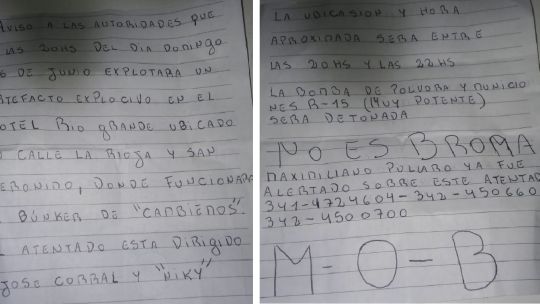 AVISO A LAS AUTORIDADES QUE
LAS 20HS DEL DIA DOMINGO
6 DE JUNIO EXPLOTARA UN
TEFACTO EXPLOCIVO EN EL
OTEL RIO GRANDE UBICADO
CALLE LA RIOJA Y SAN
ERONIMO, DONDE FUNCIONARA
BÚNKER DE "CAMBIEMOS".
ATENTADO ESTA DIRIGIDO
JOSE CORRAL Y "NIKY"
LA UBICASION Y HORA
APROXIMADA SERA ENTRE
LAS 20HS Y LAS 22HS
LA BOMBA DE POLVORA Y MUNICIO
NES R-15 (MUY POTENTE)
SERA DETONADA
NO ES BROMA
MAXIMILIANO PULLARO YA FUE
ALERTADO SOBRE ESTE ATENTADO
341-4724604-342-450660
342-4500700
M-O-B